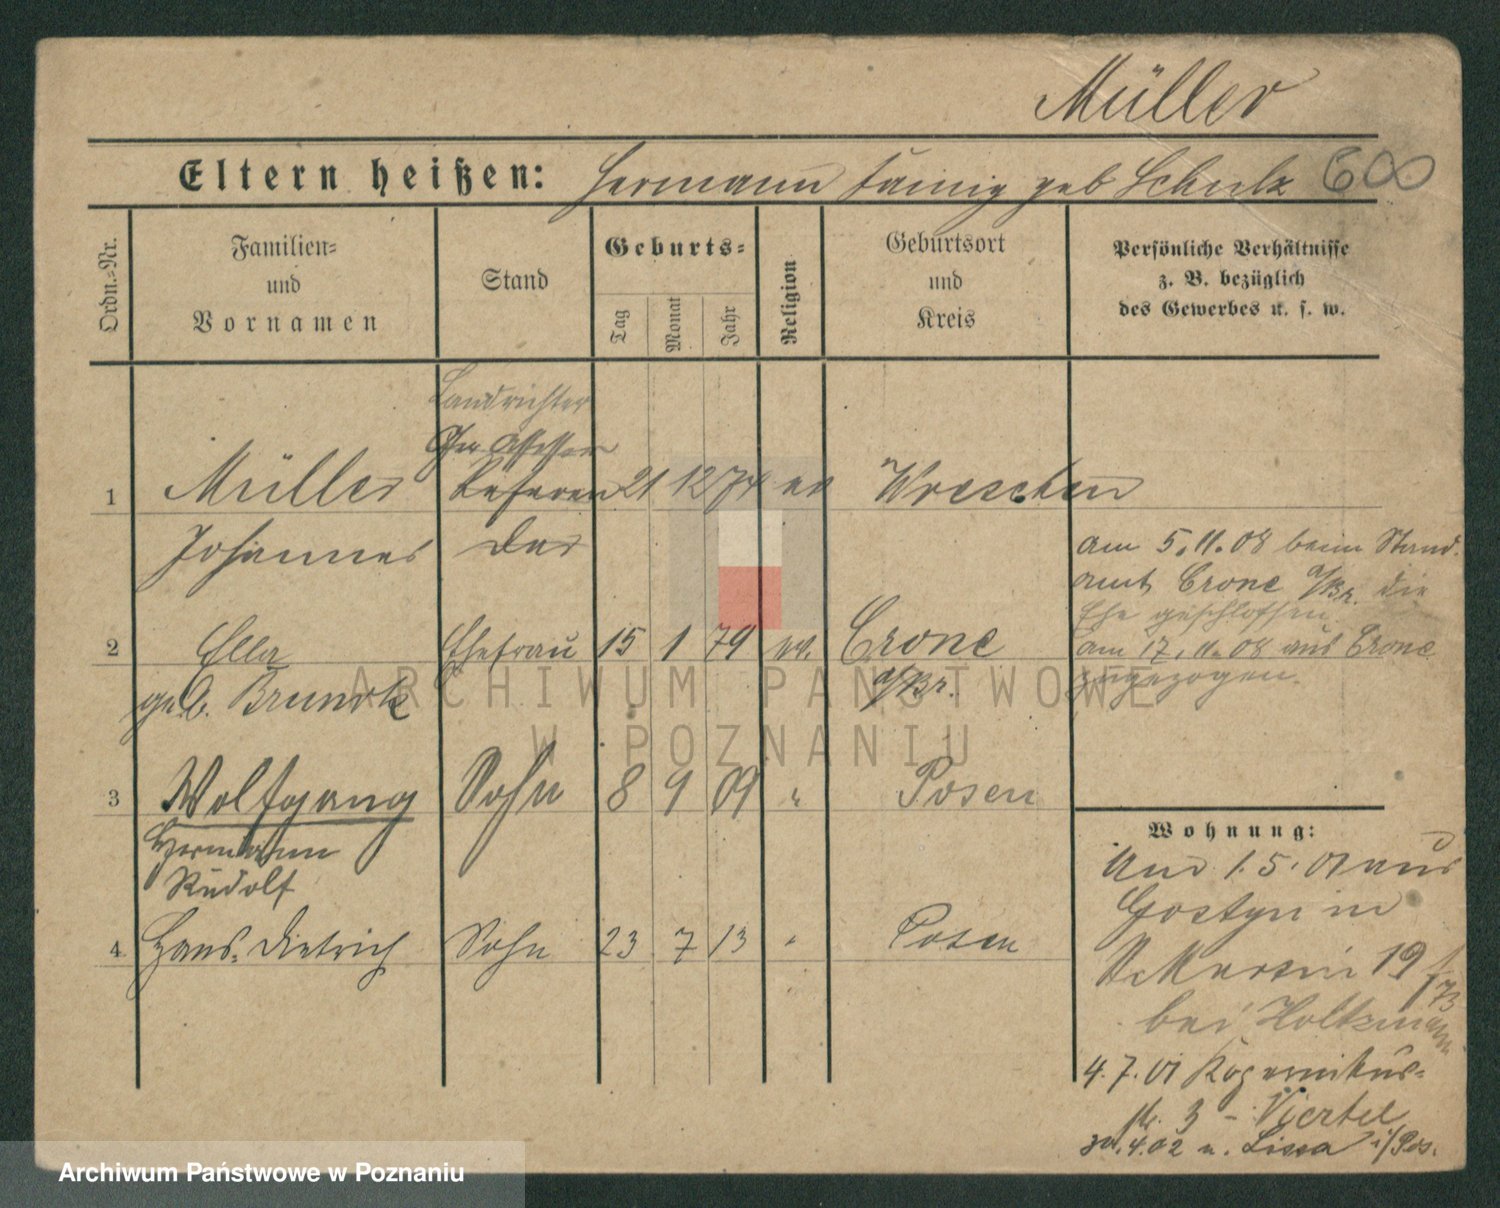 Müller
Eltern heißen: Hermann geb Schulz 600
Ordn.-Nr.
Familien-
und
Vornamen
Stand
Geburts-
Tag
Monat
Jahr
Religion
Geburtsort
und
Kreis
Persönliche Verhältnisse
z. B. bezüglich
des Gewerbes u. s. w.
Landrichter
Ger. Assessor
1 Müller Referen 21 12 74 ev Wreschen
Johannes dar
am 5.11.08 beim Stand.
amt Crone a/Br. die
Ehe geschlossen
2 Ella Ehefrau 15 1 79 ev. Crone
am 17.11.08 aus Crone
geb. a/Br.
zugezogen.
3 Wolfgang Sohn 8 9 09 " Posen
Hermann
Rudolf
4 Hans-Dietrich Sohn 23 7 13 " Posen
Wohnung:
1.5.01 aus
Gostyn in
St Martin 19
bei Holtzmann
4.7.01
3 - Viertel
4.02 n. Lissa i/Pos.
ARCHIWUM PAŃSTWOWE
W POZNANIU
Archiwum Państwowe w Poznaniu